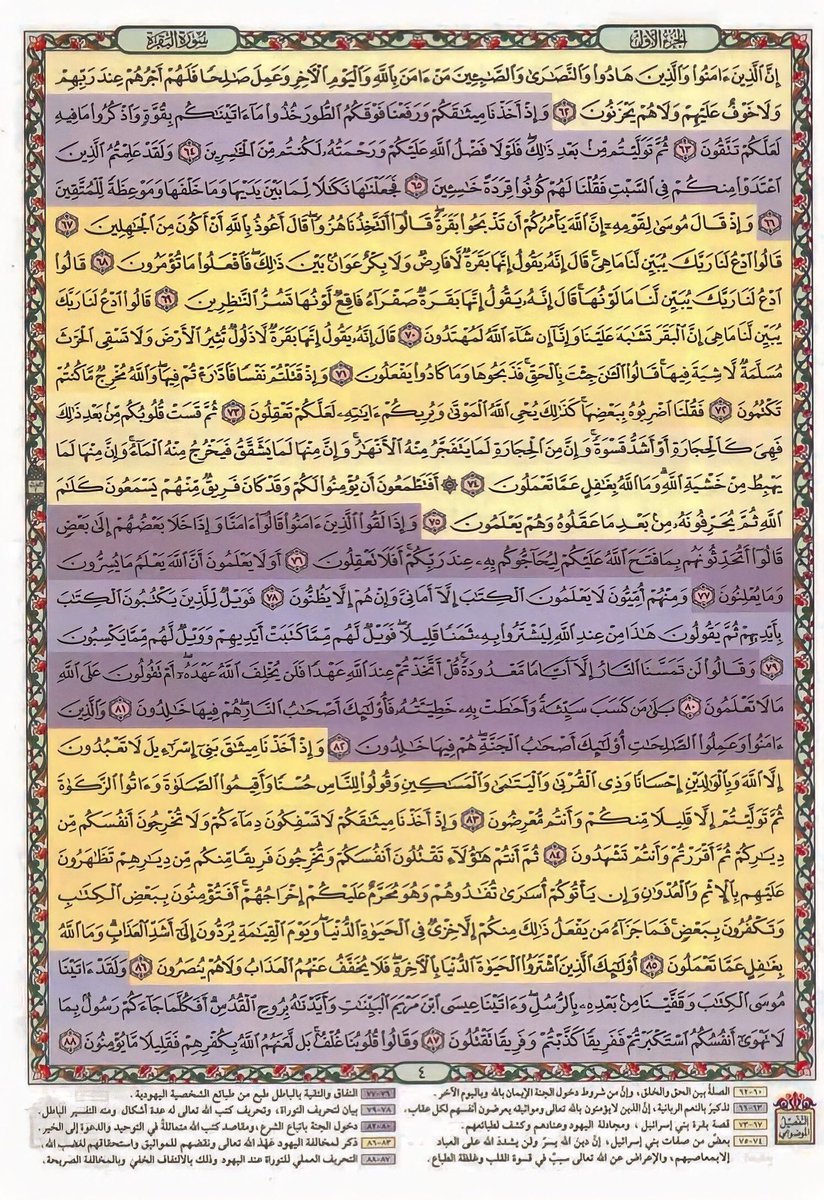 سُورَةُ البَقَرَةِ
الجُزْءُ الأَوَّلُ
إِنَّ الَّذِينَ ءَامَنُوا وَالَّذِينَ هَادُوا وَالنَّصَـٰرَىٰ وَالصَّـٰبِـِٔينَ مَنْ ءَامَنَ بِاللَّهِ وَالْيَوْمِ الْـَٔاخِرِ وَعَمِلَ صَـٰلِحًا فَلَهُمْ أَجْرُهُمْ عِندَ رَبِّهِمْ
وَلَا خَوْفٌ عَلَيْهِمْ وَلَا هُمْ يَحْزَنُونَ ٦٢ وَإِذْ أَخَذْنَا مِيثَـٰقَكُمْ وَرَفَعْنَا فَوْقَكُمُ الطُّورَ خُذُوا مَآ ءَاتَيْنَـٰكُم بِقُوَّةٍ وَاذْكُرُوا مَا فِيهِ
لَعَلَّكُمْ تَتَّقُونَ ٦٣ ثُمَّ تَوَلَّيْتُم مِّنۢ بَعْدِ ذَٰلِكَ ۖ فَلَوْلَا فَضْلُ اللَّهِ عَلَيْكُمْ وَرَحْمَتُهُۥ لَكُنتُم مِّنَ الْخَـٰسِرِينَ ٦٤ وَلَقَدْ عَلِمْتُمُ الَّذِينَ
اعْتَدَوْا مِنكُمْ فِي السَّبْتِ فَقُلْنَا لَهُمْ كُونُوا قِرَدَةً خَـٰسِـِٔينَ ٦٥ فَجَعَلْنَـٰهَا نَكَـٰلًا لِّمَا بَيْنَ يَدَيْهَا وَمَا خَلْفَهَا وَمَوْعِظَةً لِّلْمُتَّقِينَ
٦٦ وَإِذْ قَالَ مُوسَىٰ لِقَوْمِهِۦٓ إِنَّ اللَّهَ يَأْمُرُكُمْ أَن تَذْبَحُوا بَقَرَةً ۖ قَالُوٓا أَتَتَّخِذُنَا هُزُوًا ۖ قَالَ أَعُوذُ بِاللَّهِ أَنْ أَكُونَ مِنَ الْجَـٰهِلِينَ ٦٧
قَالُوا ادْعُ لَنَا رَبَّكَ يُبَيِّن لَّنَا مَا هِيَ ۚ قَالَ إِنَّهُۥ يَقُولُ إِنَّهَا بَقَرَةٌ لَّا فَارِضٌ وَلَا بِكْرٌ عَوَانٌۢ بَيْنَ ذَٰلِكَ ۖ فَافْعَلُوا مَا تُؤْمَرُونَ ٦٨ قَالُوا
ادْعُ لَنَا رَبَّكَ يُبَيِّن لَّنَا مَا لَوْنُهَا ۚ قَالَ إِنَّهُۥ يَقُولُ إِنَّهَا بَقَرَةٌ صَفْرَآءُ فَاقِعٌ لَّوْنُهَا تَسُرُّ النَّـٰظِرِينَ ٦٩ قَالُوا ادْعُ لَنَا رَبَّكَ
يُبَيِّن لَّنَا مَا هِيَ إِنَّ الْبَقَرَ تَشَـٰبَهَ عَلَيْنَا وَإِنَّآ إِن شَآءَ اللَّهُ لَمُهْتَدُونَ ٧٠ قَالَ إِنَّهُۥ يَقُولُ إِنَّهَا بَقَرَةٌ لَّا ذَلُولٌ تُثِيرُ الْأَرْضَ وَلَا تَسْقِي الْحَرْثَ
مُسَلَّمَةٌ لَّا شِيَةَ فِيهَا ۚ قَالُوا الْـَٔـٰنَ جِئْتَ بِالْحَقِّ ۚ فَذَبَحُوهَا وَمَا كَادُوا يَفْعَلُونَ ٧١ وَإِذْ قَتَلْتُمْ نَفْسًا فَادَّٰرَْٰٔتُمْ فِيهَا ۖ وَاللَّهُ مُخْرِجٌ مَّا كُنتُمْ
تَكْتُمُونَ ٧٢ فَقُلْنَا اضْرِبُوهُ بِبَعْضِهَا ۚ كَذَٰلِكَ يُحْيِ اللَّهُ الْمَوْتَىٰ وَيُرِيكُمْ ءَايَـٰتِهِۦ لَعَلَّكُمْ تَعْقِلُونَ ٧٣ ثُمَّ قَسَتْ قُلُوبُكُم مِّنۢ بَعْدِ ذَٰلِكَ
فَهِيَ كَالْحِجَارَةِ أَوْ أَشَدُّ قَسْوَةً ۚ وَإِنَّ مِنَ الْحِجَارَةِ لَمَا يَتَفَجَّرُ مِنْهُ الْأَنْهَـٰرُ ۚ وَإِنَّ مِنْهَا لَمَا يَشَّقَّقُ فَيَخْرُجُ مِنْهُ الْمَآءُ ۚ وَإِنَّ مِنْهَا لَمَا
يَهْبِطُ مِنْ خَشْيَةِ اللَّهِ ۗ وَمَا اللَّهُ بِغَـٰفِلٍ عَمَّا تَعْمَلُونَ ٧٤ ۞ أَفَتَطْمَعُونَ أَن يُؤْمِنُوا لَكُمْ وَقَدْ كَانَ فَرِيقٌ مِّنْهُمْ يَسْمَعُونَ كَلَـٰمَ
اللَّهِ ثُمَّ يُحَرِّفُونَهُۥ مِنۢ بَعْدِ مَا عَقَلُوهُ وَهُمْ يَعْلَمُونَ ٧٥ وَإِذَا لَقُوا الَّذِينَ ءَامَنُوا قَالُوٓا ءَامَنَّا وَإِذَا خَلَا بَعْضُهُمْ إِلَىٰ بَعْضٍ
قَالُوٓا أَتُحَدِّثُونَهُم بِمَا فَتَحَ اللَّهُ عَلَيْكُمْ لِيُحَآجُّوكُم بِهِۦ عِندَ رَبِّكُمْ ۚ أَفَلَا تَعْقِلُونَ ٧٦ أَوَلَا يَعْلَمُونَ أَنَّ اللَّهَ يَعْلَمُ مَا يُسِرُّونَ
وَمَا يُعْلِنُونَ ٧٧ وَمِنْهُمْ أُمِّيُّونَ لَا يَعْلَمُونَ الْكِتَـٰبَ إِلَّآ أَمَانِيَّ وَإِنْ هُمْ إِلَّا يَظُنُّونَ ٧٨ فَوَيْلٌ لِّلَّذِينَ يَكْتُبُونَ الْكِتَـٰبَ
بِأَيْدِيهِمْ ثُمَّ يَقُولُونَ هَـٰذَا مِنْ عِندِ اللَّهِ لِيَشْتَرُوا بِهِۦ ثَمَنًا قَلِيلًا ۖ فَوَيْلٌ لَّهُم مِّمَّا كَتَبَتْ أَيْدِيهِمْ وَوَيْلٌ لَّهُم مِّمَّا يَكْسِبُونَ
٧٩ وَقَالُوا لَن تَمَسَّنَا النَّارُ إِلَّآ أَيَّامًا مَّعْدُودَةً ۚ قُلْ أَتَّخَذْتُمْ عِندَ اللَّهِ عَهْدًا فَلَن يُخْلِفَ اللَّهُ عَهْدَهُۥٓ ۖ أَمْ تَقُولُونَ عَلَى اللَّهِ
مَا لَا تَعْلَمُونَ ٨٠ بَلَىٰ مَن كَسَبَ سَيِّئَةً وَأَحَـٰطَتْ بِهِۦ خَطِيٓـَٔتُهُۥ فَأُولَـٰٓئِكَ أَصْحَـٰبُ النَّارِ ۖ هُمْ فِيهَا خَـٰلِدُونَ ٨١ وَالَّذِينَ
ءَامَنُوا وَعَمِلُوا الصَّـٰلِحَـٰتِ أُولَـٰٓئِكَ أَصْحَـٰبُ الْجَنَّةِ ۖ هُمْ فِيهَا خَـٰلِدُونَ ٨٢ وَإِذْ أَخَذْنَا مِيثَـٰقَ بَنِيٓ إِسْرَٰٓءِيلَ لَا تَعْبُدُونَ
إِلَّا اللَّهَ وَبِالْوَٰلِدَيْنِ إِحْسَانًا وَذِي الْقُرْبَىٰ وَالْيَتَـٰمَىٰ وَالْمَسَـٰكِينِ وَقُولُوا لِلنَّاسِ حُسْنًا وَأَقِيمُوا الصَّلَوٰةَ وَءَاتُوا الزَّكَوٰةَ
ثُمَّ تَوَلَّيْتُمْ إِلَّا قَلِيلًا مِّنكُمْ وَأَنتُم مُّعْرِضُونَ ٨٣ وَإِذْ أَخَذْنَا مِيثَـٰقَكُمْ لَا تَسْفِكُونَ دِمَآءَكُمْ وَلَا تُخْرِجُونَ أَنفُسَكُم مِّن
دِيَـٰرِكُمْ ثُمَّ أَقْرَرْتُمْ وَأَنتُمْ تَشْهَدُونَ ٨٤ ثُمَّ أَنتُمْ هَـٰٓؤُلَآءِ تَقْتُلُونَ أَنفُسَكُمْ وَتُخْرِجُونَ فَرِيقًا مِّنكُم مِّن دِيَـٰرِهِمْ تَظَـٰهَرُونَ
عَلَيْهِم بِالْإِثْمِ وَالْعُدْوَٰنِ وَإِن يَأْتُوكُمْ أُسَـٰرَىٰ تُفَـٰدُوهُمْ وَهُوَ مُحَرَّمٌ عَلَيْكُمْ إِخْرَاجُهُمْ ۚ أَفَتُؤْمِنُونَ بِبَعْضِ الْكِتَـٰبِ
وَتَكْفُرُونَ بِبَعْضٍ ۚ فَمَا جَزَآءُ مَن يَفْعَلُ ذَٰلِكَ مِنكُمْ إِلَّا خِزْيٌ فِي الْحَيَوٰةِ الدُّنْيَا ۖ وَيَوْمَ الْقِيَـٰمَةِ يُرَدُّونَ إِلَىٰٓ أَشَدِّ الْعَذَابِ ۗ وَمَا اللَّهُ
بِغَـٰفِلٍ عَمَّا تَعْمَلُونَ ٨٥ أُولَـٰٓئِكَ الَّذِينَ اشْتَرَوُا الْحَيَوٰةَ الدُّنْيَا بِالْـَٔاخِرَةِ ۖ فَلَا يُخَفَّفُ عَنْهُمُ الْعَذَابُ وَلَا هُمْ يُنصَرُونَ ٨٦ وَلَقَدْ ءَاتَيْنَا
مُوسَى الْكِتَـٰبَ وَقَفَّيْنَا مِنۢ بَعْدِهِۦ بِالرُّسُلِ ۖ وَءَاتَيْنَا عِيسَى ابْنَ مَرْيَمَ الْبَيِّنَـٰتِ وَأَيَّدْنَـٰهُ بِرُوحِ الْقُدُسِ ۗ أَفَكُلَّمَا جَآءَكُمْ رَسُولٌۢ بِمَا
لَا تَهْوَىٰٓ أَنفُسُكُمُ اسْتَكْبَرْتُمْ فَفَرِيقًا كَذَّبْتُمْ وَفَرِيقًا تَقْتُلُونَ ٨٧ وَقَالُوا قُلُوبُنَا غُلْفٌۢ ۚ بَل لَّعَنَهُمُ اللَّهُ بِكُفْرِهِمْ فَقَلِيلًا مَّا يُؤْمِنُونَ ٨٨
٤
التفصيل الموضوعي
٦٠-٦٢ الصلة بين الحق والخلق، وإنّ من شروط دخول الجنة الإيمان بالله وباليوم الآخر.
٦٣-٦٦ تذكيرٌ بالنعم الربانية، إنَّ الذين لا يؤمنون بالله تعالى ومواثيقه يعرضون أنفسهم لكل عقاب.
٦٧-٧٣ قصة بقرة بني إسرائيل، ومجادلة اليهود وعنادهم وكشف لطبائعهم.
٧٤-٧٥ بعضٌ من صفات بني إسرائيل، إنَّ دينَ الله يسرٌ ولن يشددَ الله على العباد
إلا بمعاصيهم، والإعراض عن الله تعالى سببٌ في قسوة القلب وغلظة الطباع.
٧٦-٧٧ النفاق والتقية بالباطل طبع من طبائع الشخصية اليهودية.
٧٨-٧٩ بيان لتحريف التوراة، وتحريف كتب الله تعالى له عدة أشكال ومنه التفسير الباطل.
٨٠-٨٢ دخول الجنة باتباع الشرع، ومقاصد كتب الله متماثلةٌ في التوحيد والدعوة إلى الخير.
٨٣-٨٦ ذكر لمخالفة اليهود عَهْدَ الله تعالى ونقضهم للمواثيق واستحقاقهم لغضب الله.
٨٧-٨٨ التحريف العملي للتوراة عند اليهود وذلك بالالتفاف الخفي وبالمخالفة الصريحة.